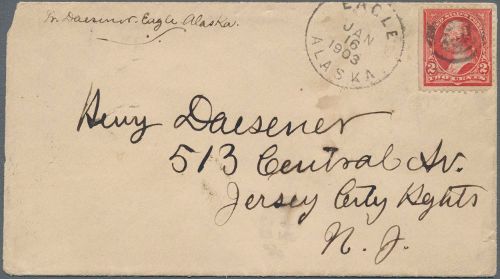 Fr. Daesener. Eagle Alaska.
EAGLE
JAN
16
1903
ALASKA
2 2
TWO CENTS
Heny Daesener
513 Central Av.
Jersey City Hghts
N. J.